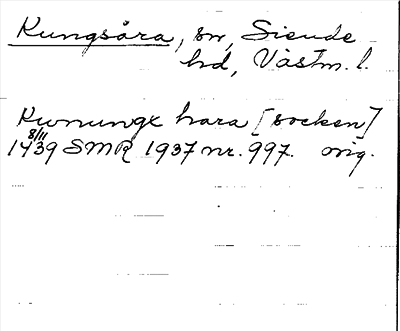 Kungsåra, sn, Siende
hd, Västm. l.
Kununge hara [socken]
8/11
1439 SMR 1937 nr. 997. orig.